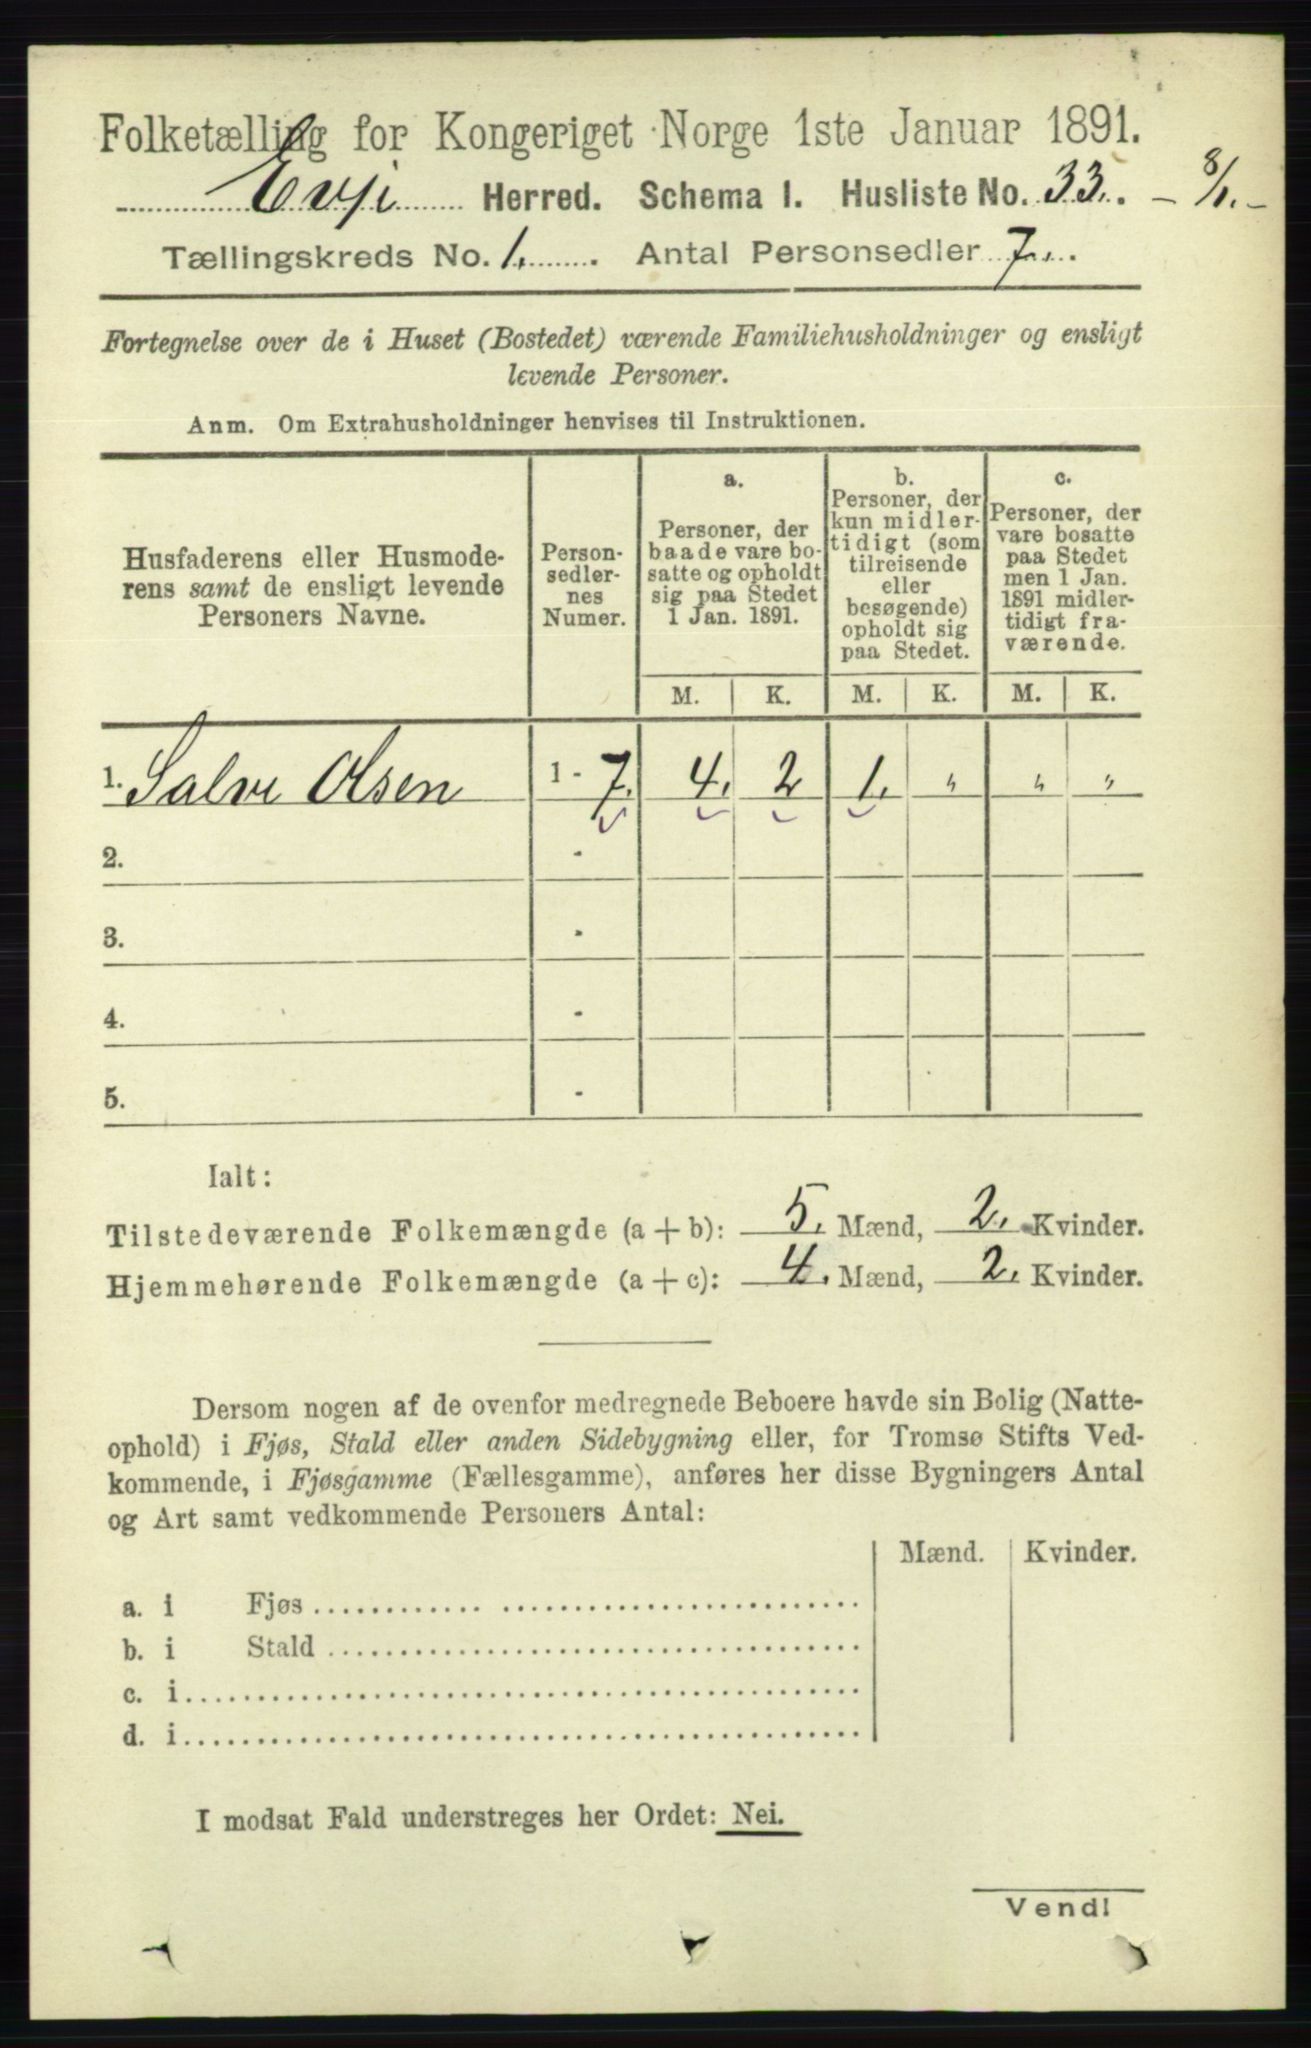 Folketælling for Kongeriget Norge 1ste Januar 1891.
Evje Herred. Schema I. Husliste No. 33. - 8/1. -
Tællingskreds No. 1. Antal Personsedler 7.
Fortegnelse over de i Huset (Bostedet) værende Familiehusholdninger og ensligt
levende Personer.
Anm. Om Extrahusholdninger henvises til Instruktionen.
Husfaderens eller Husmode-
rens samt de ensligt levende
Personers Navne.
Person-
sedler-
nes
Numer.
a.
Personer, der
baade vare bo-
satte og opholdt
sig paa Stedet
1 Jan. 1891.
b.
Personer, der
kun midler-
tidigt (som
tilreisende
eller
besøgende)
opholdt sig
paa Stedet.
c.
Personer, der
vare bosatte
paa Stedet
men 1 Jan.
1891 midler-
tidigt fra-
værende.
M. K. M. K. M. K.
1. Salve Olsen 1 - 7. 4. 2 1. " " "
2. -
3. -
4. -
5. -
Ialt:
Tilstedeværende Folkemængde (a + b): 5. Mænd, 2. Kvinder.
Hjemmehørende Folkemængde (a + c): 4. Mænd, 2. Kvinder.
Dersom nogen af de ovenfor medregnede Beboere havde sin Bolig (Natte-
ophold) i Fjøs, Stald eller anden Sidebygning eller, for Tromsø Stifts Ved-
kommende, i Fjøsgamme (Fællesgamme), anføres her disse Bygningers Antal
og Art samt vedkommende Personers Antal:
Mænd. Kvinder.
a. i Fjøs
b. i Stald
c. i
d. i
I modsat Fald understreges her Ordet: Nei.
Vend!